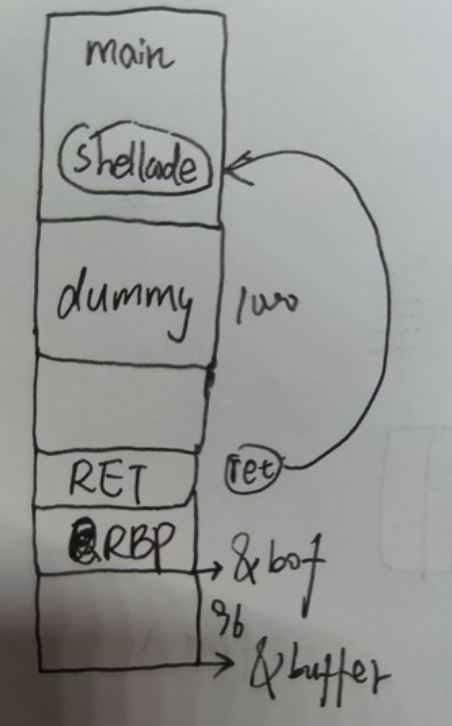 main
shellcode
dummy 1000
RET ret
RBP
&bof
96
&buffer